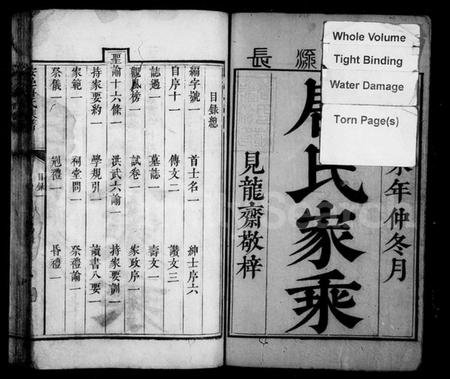 Whole Volume
Tight Binding
Water Damage
Torn Page(s)
源
長
年仲冬月
氏家乘
見龍齋敬梓
目錄總
編字號 首士名一 紳士序六
自序十一 傳文二 讚文三
誌過一 墓誌一 壽文一
龍鳳榜一 試卷一 家政序一
聖諭十六條一 洪武六諭一 持家要訓一
持家要約一 學規引一 讀書八要一
家範一 祠堂問一 祭禮論一
祭儀一 冠禮一 昏禮一
目錄